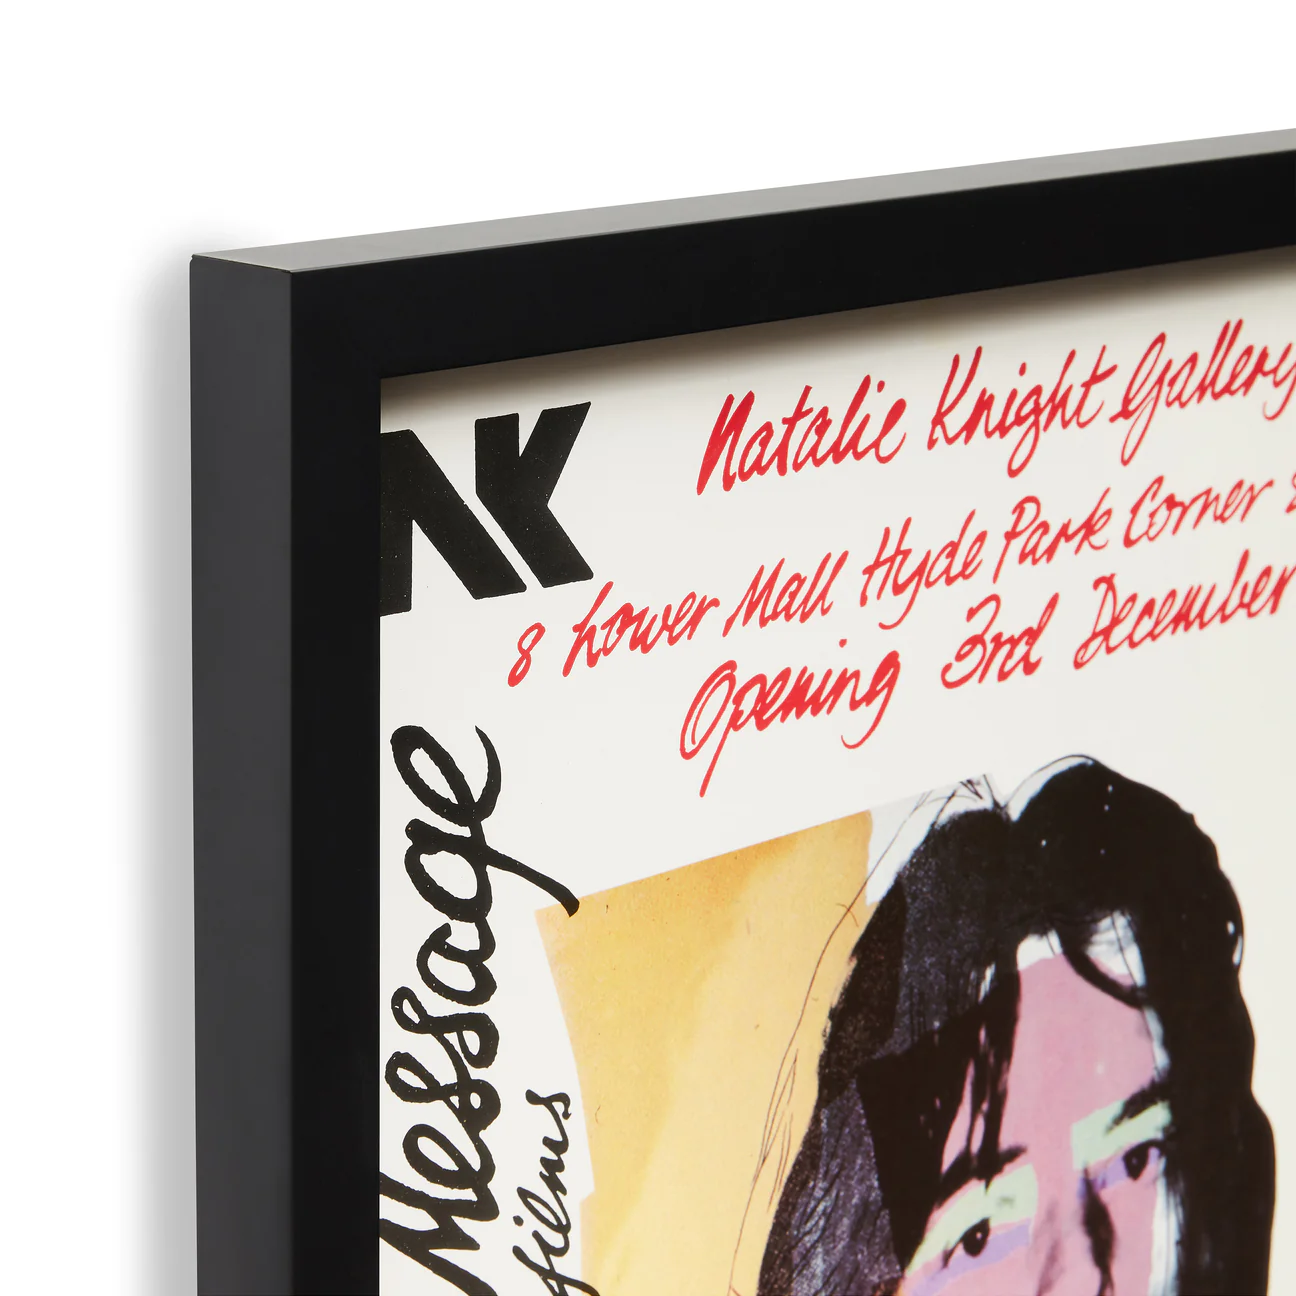 NK
Natalie Knight Gallery
8 Lower Mall Hyde Park Corner
Opening 3rd December
Message
films